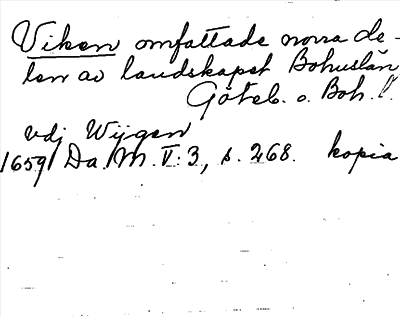 Viken omfattade norra de-
len av landskapet Bohuslän
Göteb. o. Boh. l.
vdj Wijgen
1659 Da. M. V: 3, s. 268. kopia